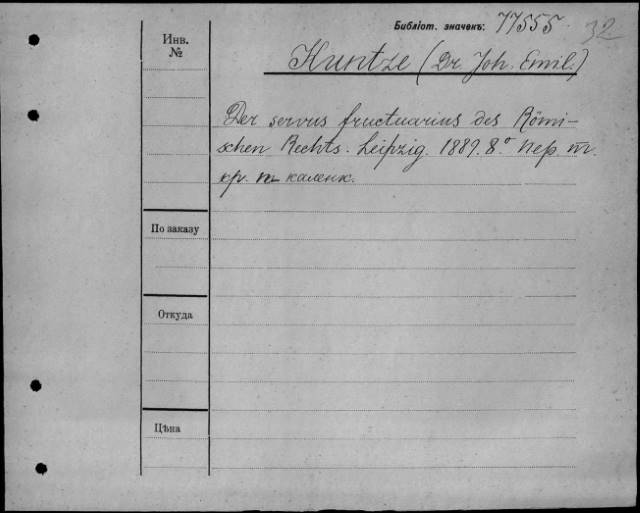 Библіот. значекъ: 77555 32
Инв.
№
Kuntze (Dr Joh. Emil.)
Der servus fructuarius des Römi-
schen Rechts. Leipzig. 1889. 8.° пер. т.
кр. т каленк.
По заказу
Откуда
Цѣна